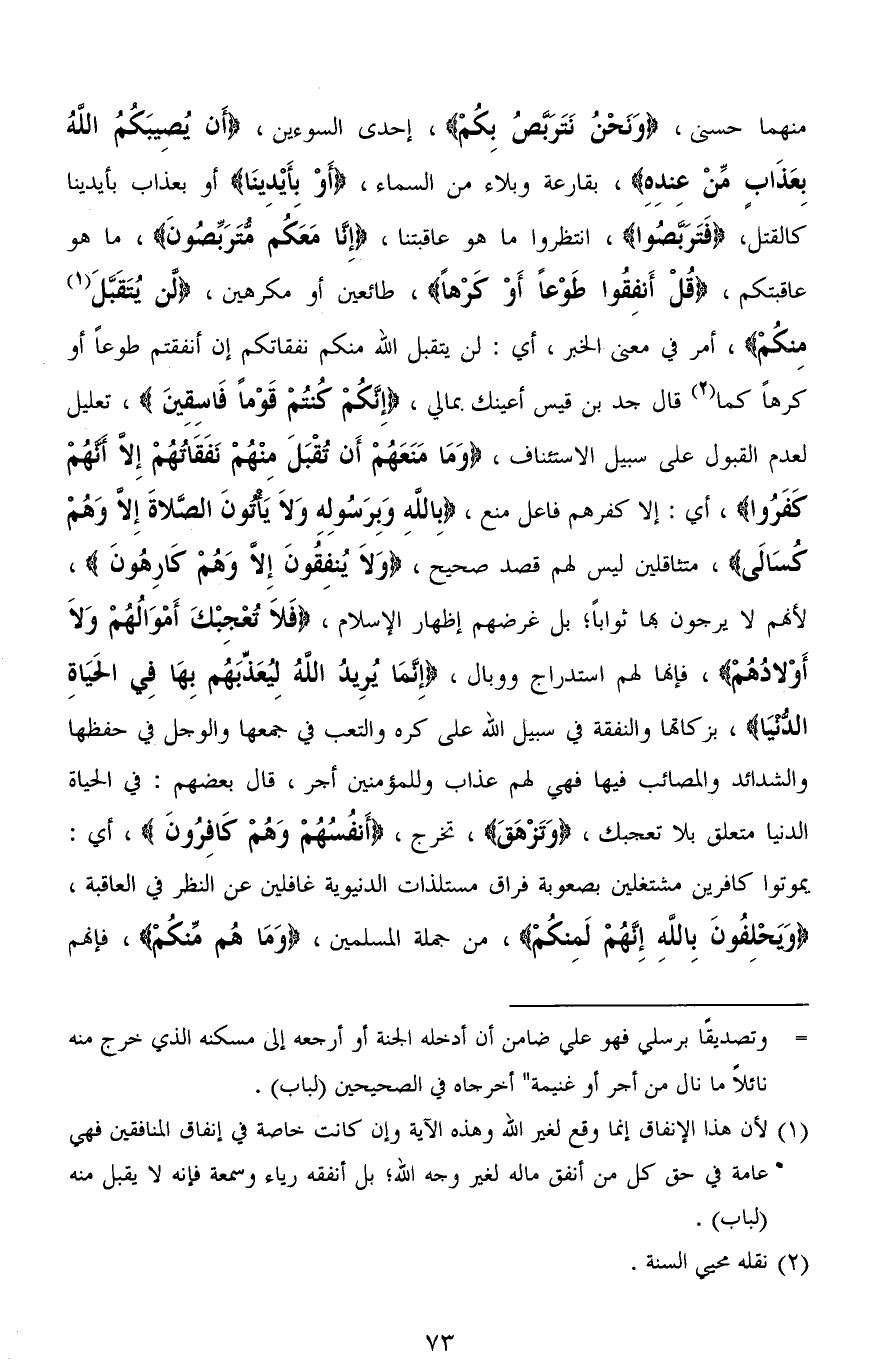 منهما حسنى ، ﴿وَنَحْنُ نَتَرَبَّصُ بِكُمْ﴾ ، إحدى السوءين ، ﴿أَن يُصِيبَكُمُ اللَّهُ
بِعَذَابٍ مِّنْ عِندِهِ﴾ ، بقارعة وبلاء من السماء ، ﴿أَوْ بِأَيْدِينَا﴾ أو بعذاب بأيدينا
كالقتل، ﴿فَتَرَبَّصُوا﴾ ، انتظروا ما هو عاقبتنا ، ﴿إِنَّا مَعَكُم مُّتَرَبِّصُونَ﴾ ، ما هو
عاقبتكم ، ﴿قُلْ أَنفِقُوا طَوْعاً أَوْ كَرْهاً﴾ ، طائعين أو مكرهين ، ﴿لَّن يُتَقَبَّلَ(١)
مِنكُمْ﴾ ، أمر في معنى الخبر ، أي : لن يتقبل الله منكم نفقاتكم إن أنفقتم طوعاً أو
كرهاً كما(٢) قال جد بن قيس أعينك بمالي ، ﴿إِنَّكُمْ كُنتُمْ قَوْماً فَاسِقِينَ ﴾ ، تعليل
لعدم القبول على سبيل الاستئناف ، ﴿وَمَا مَنَعَهُمْ أَن تُقْبَلَ مِنْهُمْ نَفَقَاتُهُمْ إِلاَّ أَنَّهُمْ
كَفَرُوا﴾ ، أي : إلا كفرهم فاعل منع ، ﴿بِاللَّهِ وَبِرَسُولِهِ وَلاَ يَأْتُونَ الصَّلاةَ إِلاَّ وَهُمْ
كُسَالَى﴾ ، متثاقلين ليس لهم قصد صحيح ، ﴿وَلاَ يُنفِقُونَ إِلاَّ وَهُمْ كَارِهُونَ ﴾ ،
لأنهم لا يرجون بها ثواباً؛ بل غرضهم إظهار الإسلام ، ﴿فَلاَ تُعْجِبْكَ أَمْوَالُهُمْ وَلاَ
أَوْلادُهُمْ﴾ ، فإنها لهم استدراج ووبال ، ﴿إِنَّمَا يُرِيدُ اللَّهُ لِيُعَذِّبَهُم بِهَا فِي الحَيَاةِ
الدُّنْيَا﴾ ، بزكاتها والنفقة في سبيل الله على كره والتعب في جمعها والوجل في حفظها
والشدائد والمصائب فيها فهي لهم عذاب وللمؤمنين أجر ، قال بعضهم : في الحياة
الدنيا متعلق بلا تعجبك ، ﴿وَتَزْهَقَ﴾ ، تخرج ، ﴿أَنفُسُهُمْ وَهُمْ كَافِرُونَ ﴾ ، أي :
يموتوا كافرين مشتغلين بصعوبة فراق مستلذات الدنيوية غافلين عن النظر في العاقبة ،
﴿وَيَحْلِفُونَ بِاللَّهِ إِنَّهُمْ لَمِنكُمْ﴾ ، من جملة المسلمين ، ﴿وَمَا هُم مِّنكُمْ﴾ ، فإنهم
= وتصديقًا برسلي فهو علي ضامن أن أدخله الجنة أو أرجعه إلى مسكنه الذي خرج منه
نائلاً ما نال من أجر أو غنيمة" أخرجاه في الصحيحين (لباب) .
(١) لأن هذا الإنفاق إنما وقع لغير الله وهذه الآية وإن كانت خاصة في إنفاق المنافقين فهي
عامة في حق كل من أنفق ماله لغير وجه الله؛ بل أنفقه رياء وسمعة فإنه لا يقبل منه
(لباب) .
(٢) نقله محيي السنة .
٧٣